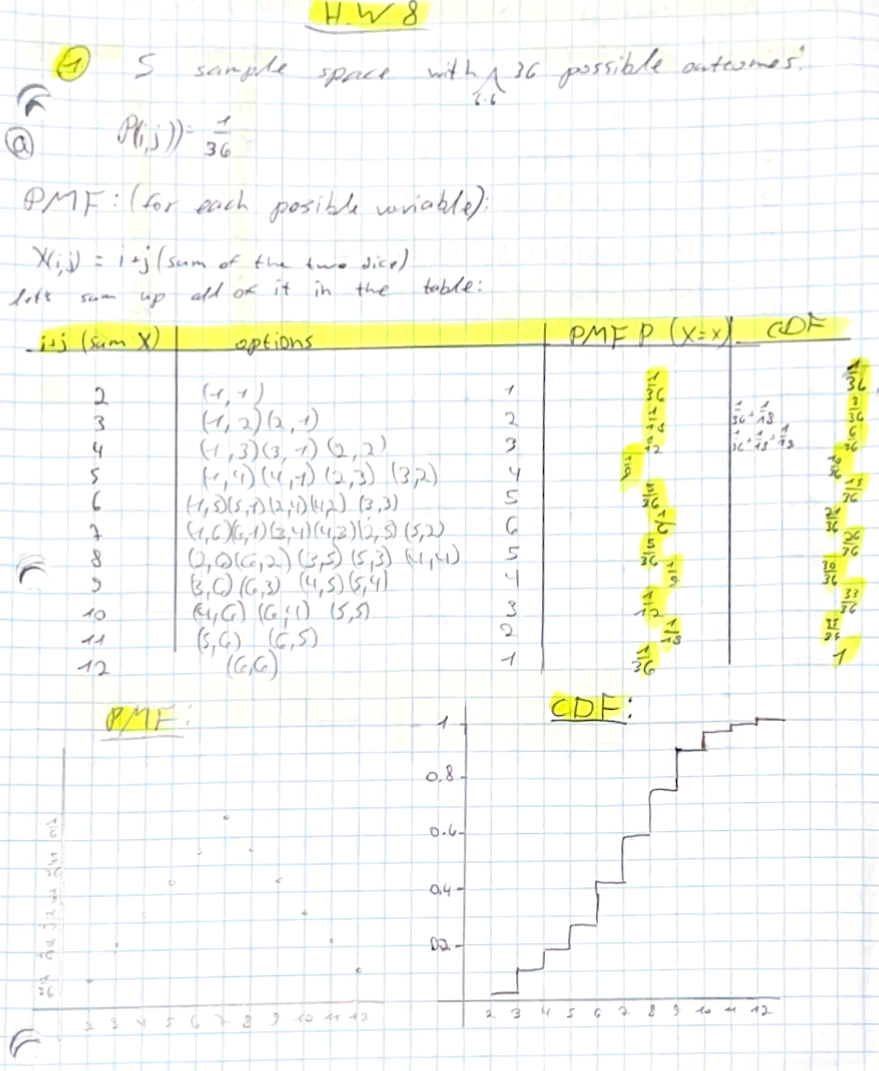 H.W 8
1 S sample space with 36 possible outcomes:
6·6
a P(i,j)) = 1/36
PMF: (for each posible variable):
X(i,j) = i+j (sum of the two dice)
lets sum up all of it in the table:
i+j (sum X) options PMF P (X=x) CDF
2 (1,1) 1 1/36 1/36
3 (1,2)(2,1) 2 1/18 1/36+1/18 3/36
4 (1,3)(3,1)(2,2) 3 1/12 1/36+1/18+1/12 6/36
5 (1,4)(4,1)(2,3)(3,2) 4 1/9 10/36
6 (1,5)(5,1)(2,4)(4,2)(3,3) 5 5/36 15/36
7 (1,6)(6,1)(3,4)(4,3)(2,5)(5,2) 6 1/6 21/36
8 (2,6)(6,2)(3,5)(5,3)(4,4) 5 5/36 26/36
9 (3,6)(6,3)(4,5)(5,4) 4 1/9 30/36
10 (4,6)(6,4)(5,5) 3 1/12 33/36
11 (5,6)(6,5) 2 1/18 35/36
12 (6,6) 1 1/36 1
PMF:
2 3 4 5 6 7 8 9 10 11 12
CDF:
1
0.8
0.6
0.4
0.2
2 3 4 5 6 7 8 9 10 11 12